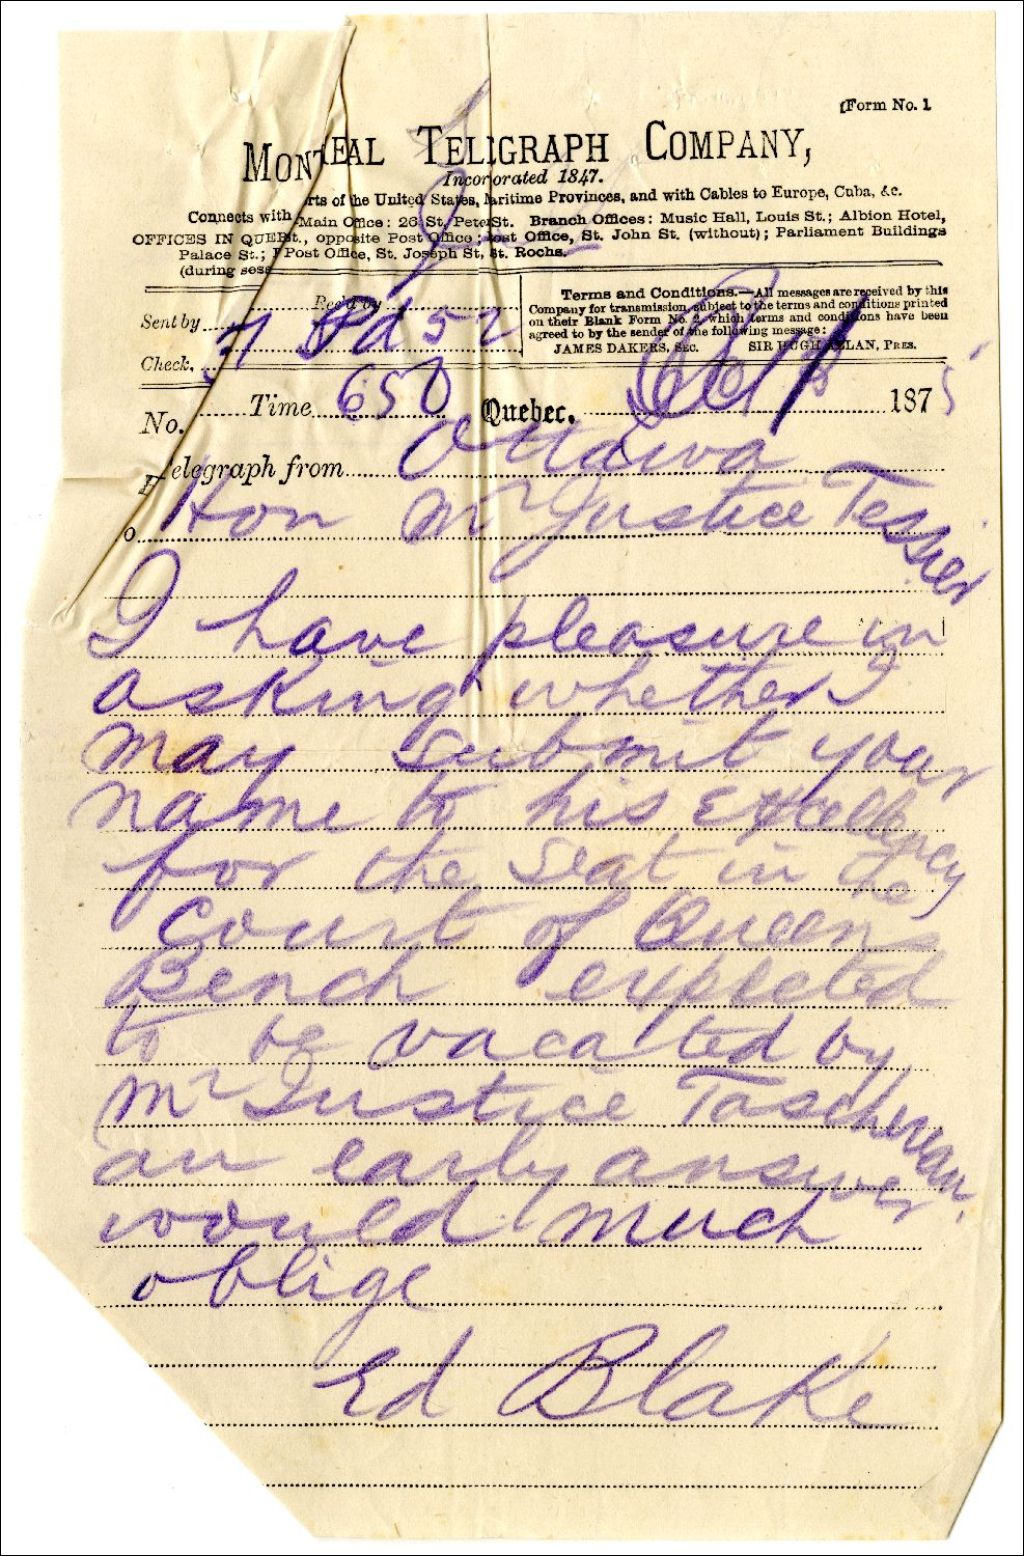 (Form No. 1
MONTREAL TELEGRAPH COMPANY,
Incorporated 1847.
Connects with rts of the United States, Maritime Provinces, and with Cables to Europe, Cuba, &c.
OFFICES IN QUEB Main Office: 26 St. Peter St. Branch Offices: Music Hall, Louis St.; Albion Hotel,
Palace St.; t., opposite Post Office; Post Office, St. John St. (without); Parliament Buildings
(during sess Post Office, St. Joseph St, St. Rochs.
Terms and Conditions.—All messages are received by this
Company for transmission, subject to the terms and conditions printed
on their Blank Form No. 2, which terms and conditions have been
agreed to by the sender of the following message:
JAMES DAKERS, SEC. SIR HUGH ALLAN, PRES.
Sent by Rec'd by
Check, 37 Pd 52
No. Time 650 Quebec. 1875
Telegraph from Ottawa
o Hon Mr Justice Tessier
I have pleasure in
asking whether I
may submit your
name to his Excellency
for the seat in the
Court of Queens
Bench expected
to be vacated by
Mr Justice Taschereau
an early answer
would much
oblige
Ed Blake